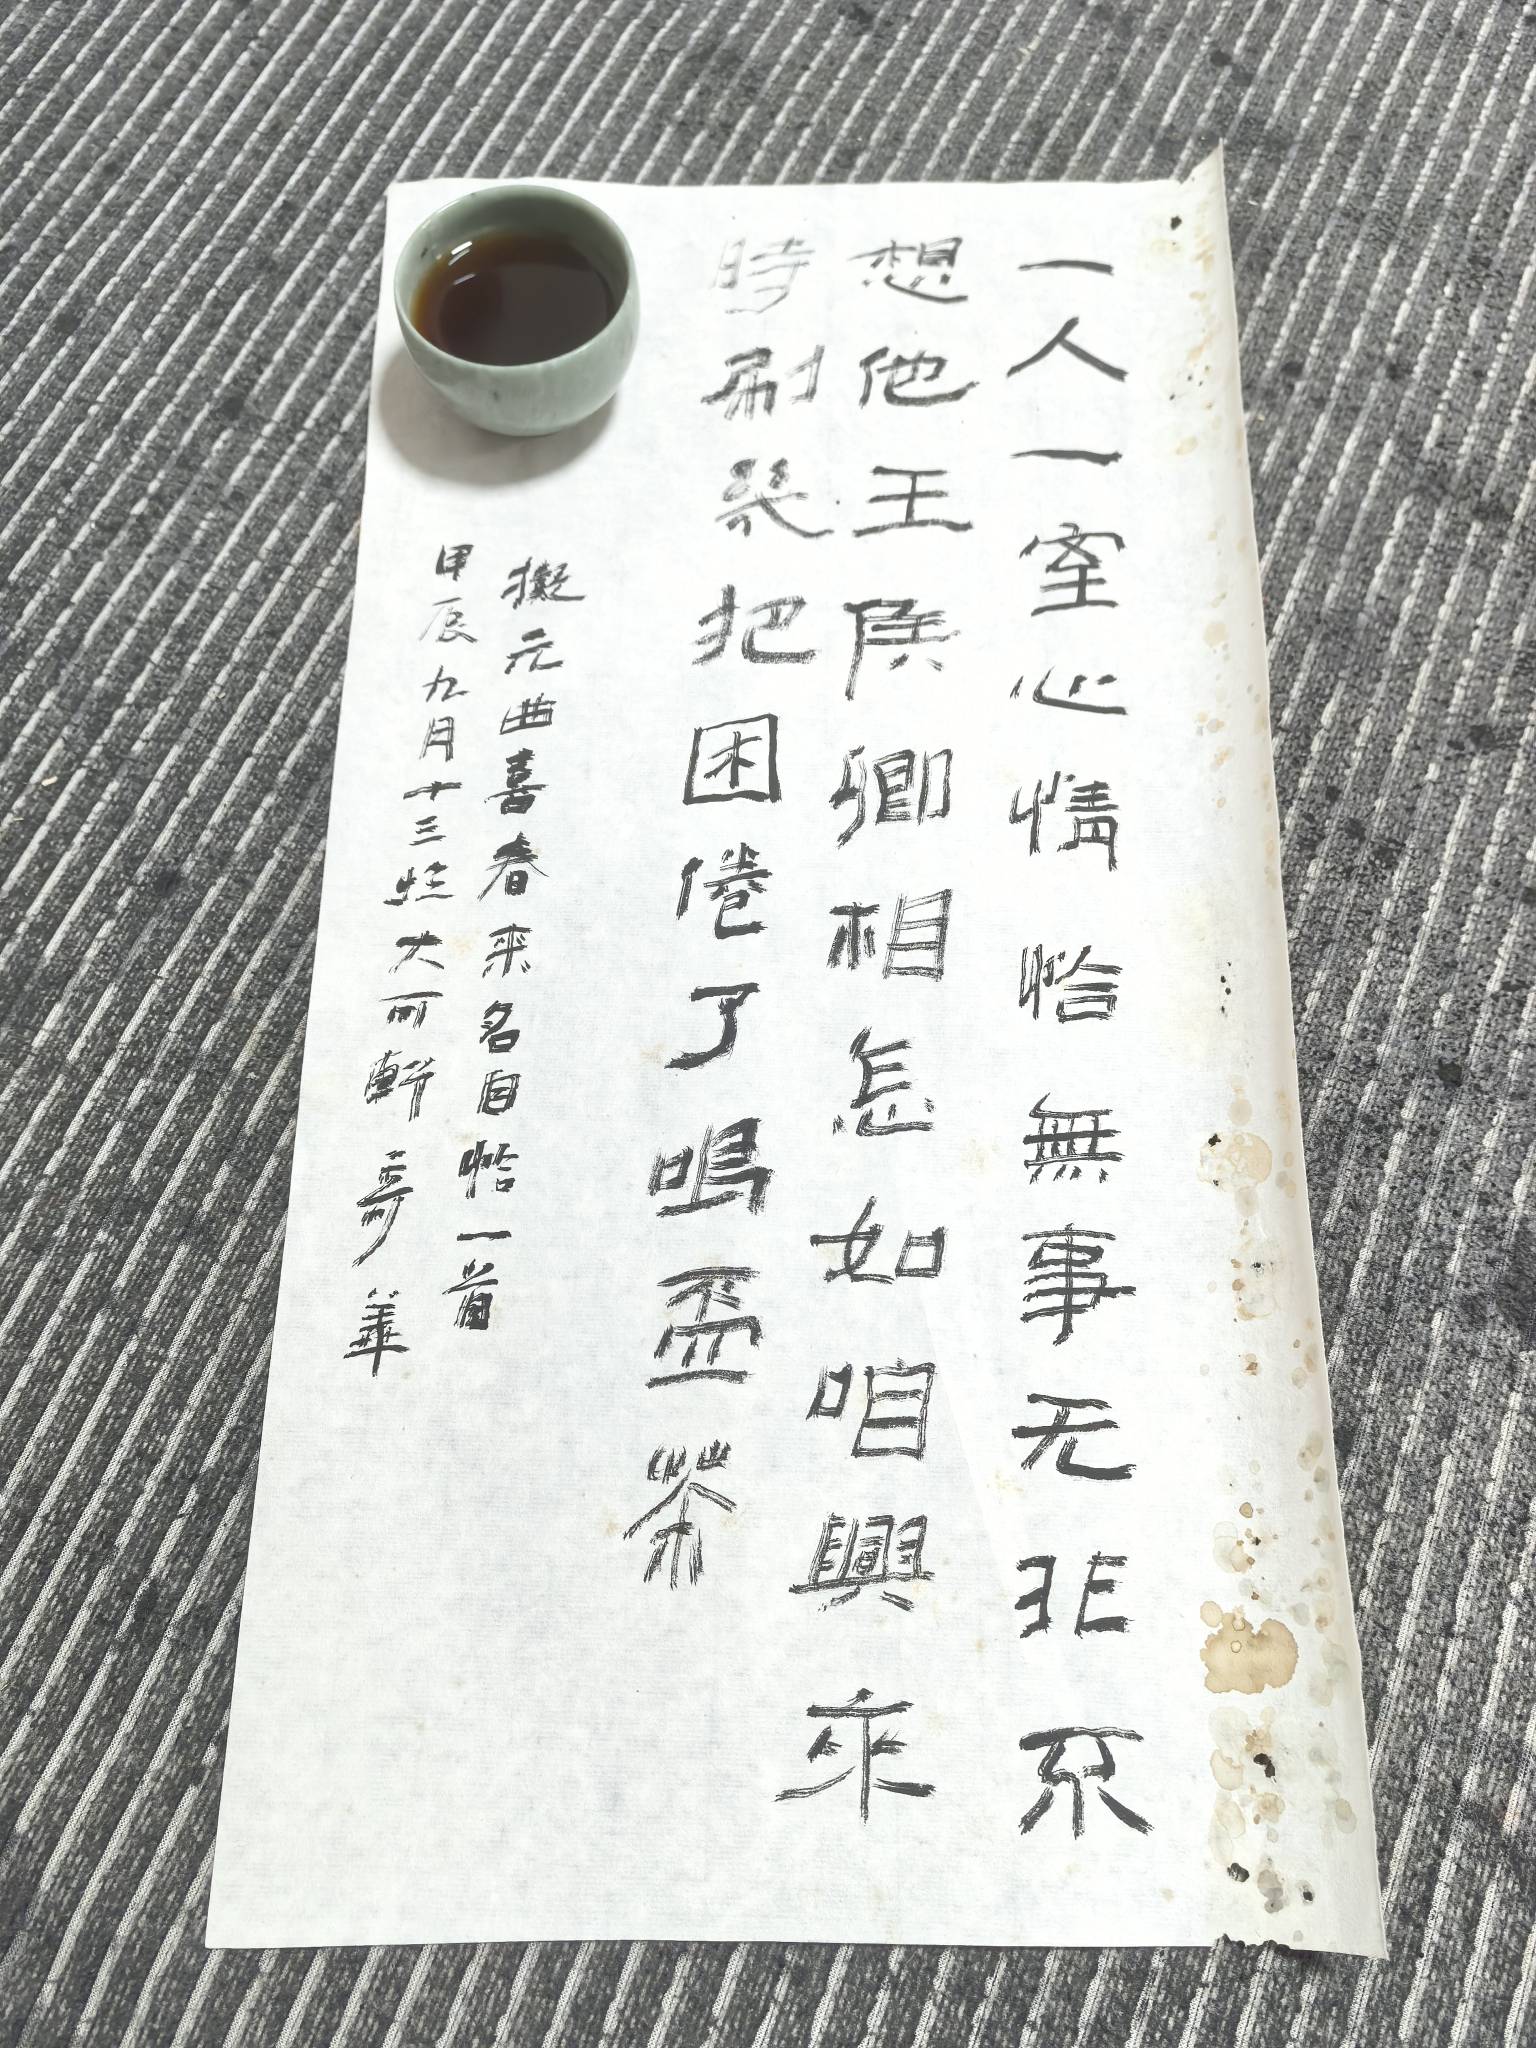 一人一室心情恰無事无非不
想他王侯卿相怎如咱興來
時刷裝把困倦了鳴盃茶
擬元曲喜春來名自恰一首
甲辰九月十三 大可軒 華